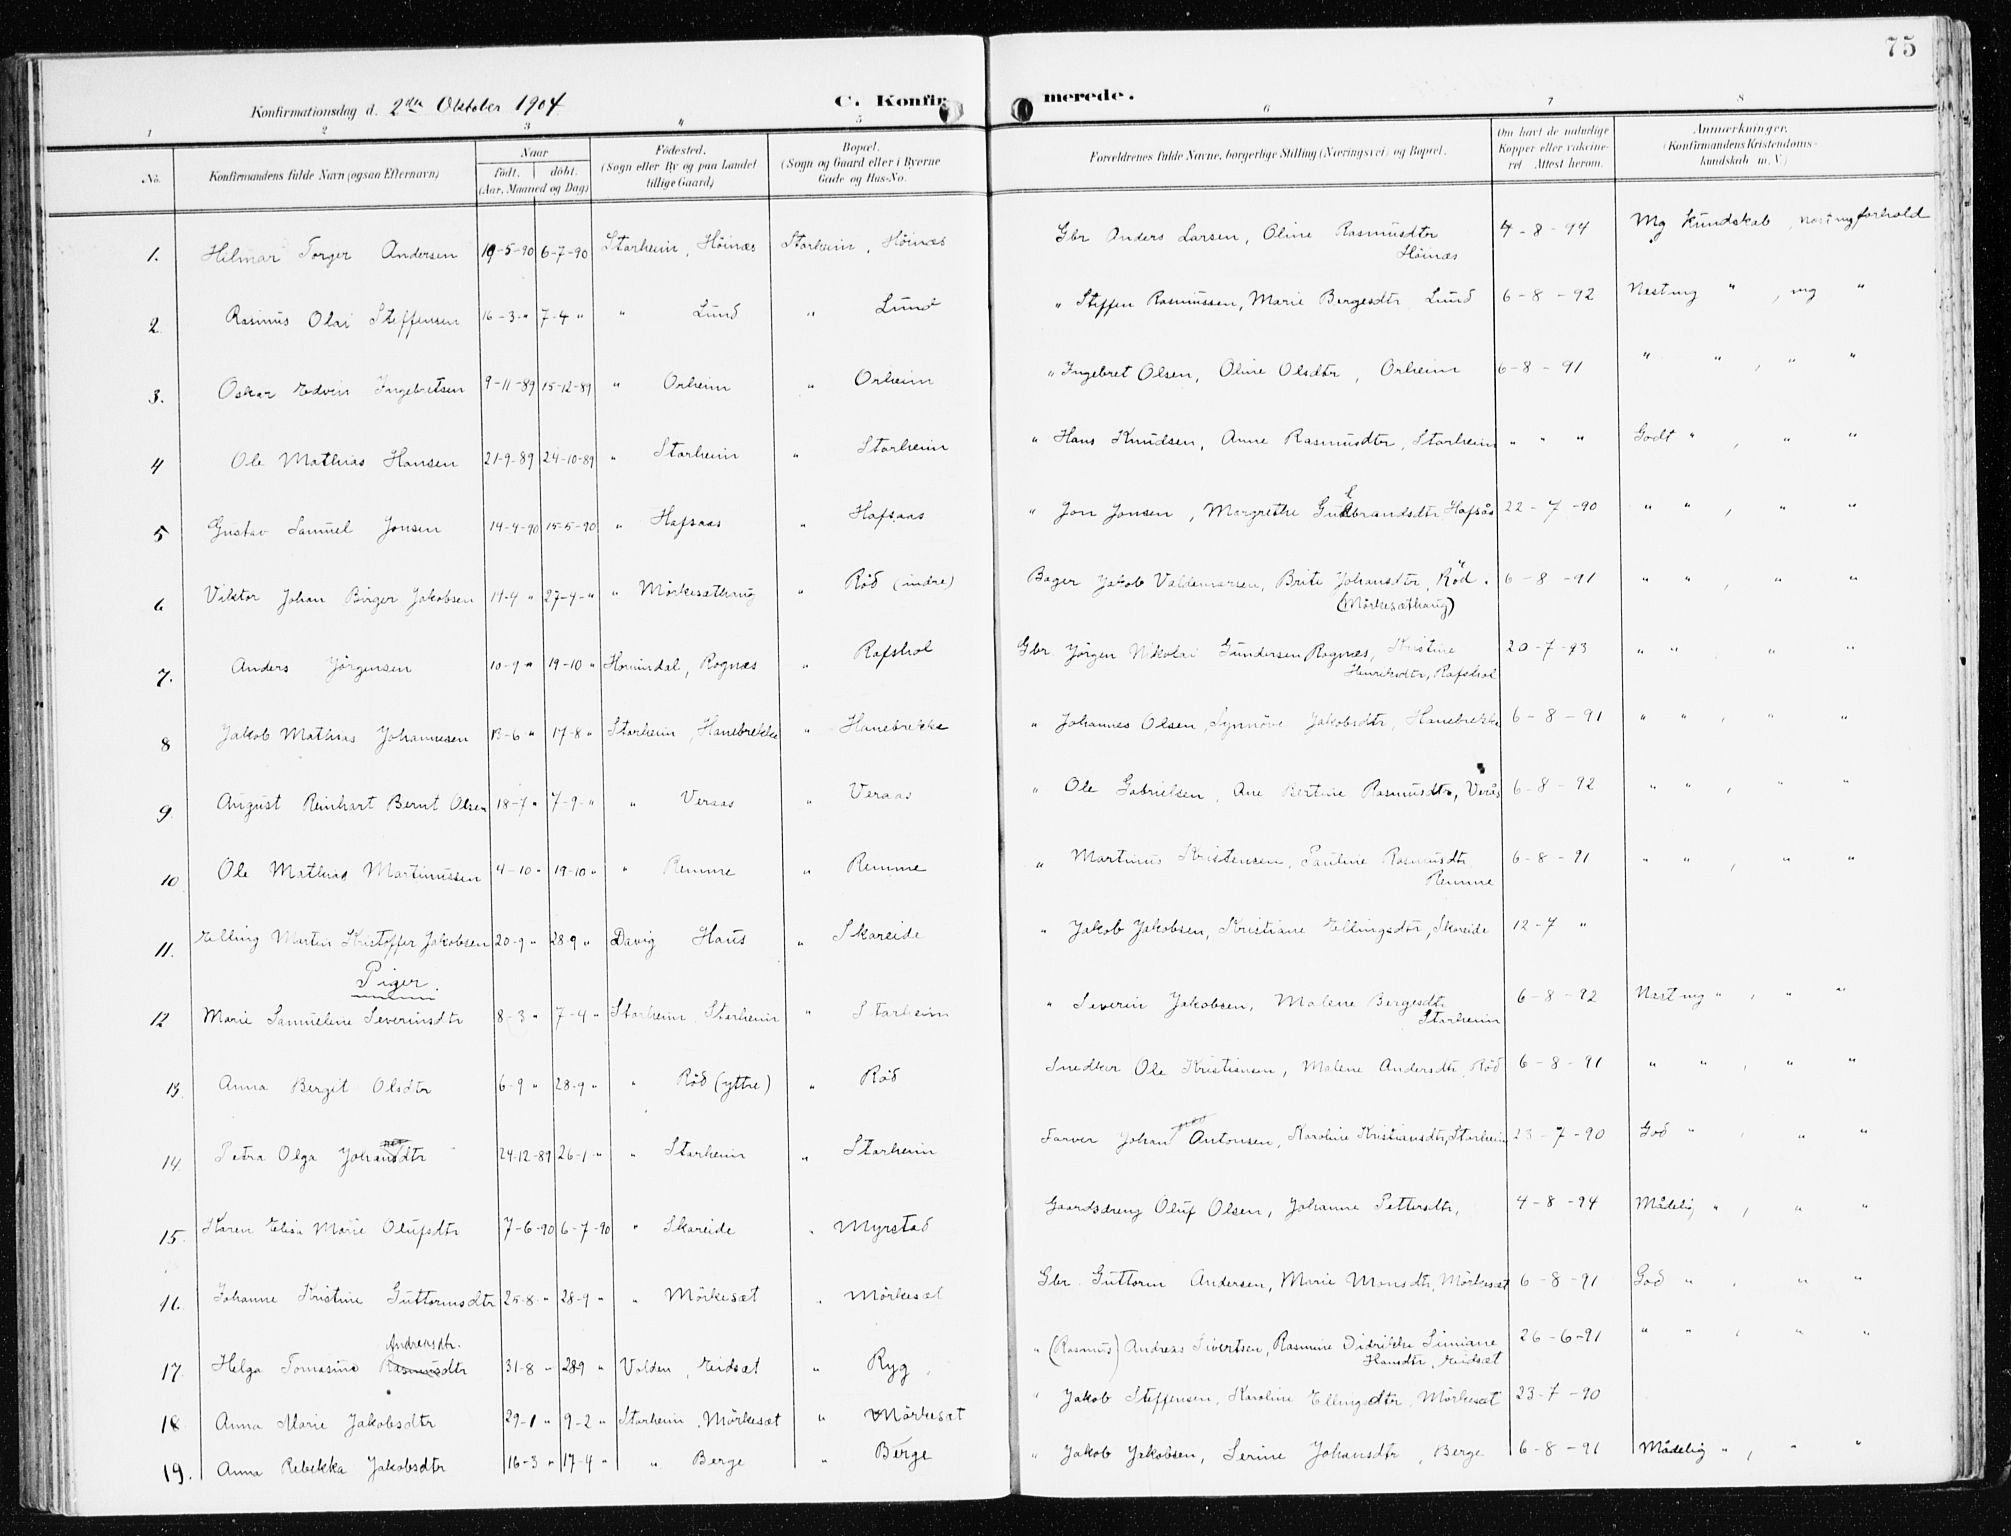 75
Konfirmationsdag d. 2den Oktober 1904 C. Konfirmerede.
1 2 3 4 5 6 7 8
No. Konfirmandens fulde Navn (ogsaa Efternavn) Naar født. døbt. (Aar, Maaned og Dag) Fødested. (Sogn eller By og paa Landet tillige Gaard) Bopæl. (Sogn og Gaard eller i Byerne Gade og Hus-No. Forældrenes fulde Navne, borgerlige Stilling (Næringsvei) og Bopæl. Om havt de naturlige Kopper eller vaccineret. Attest herom. Anmærkninger. (Konfirmandens Kristendomskundskab m. V.)
1. Hilmar Torger Andersen 19-5-90 6-7-90 Starheim, Höinæs Starheim, Höinæs Gbr Anders Larsen, Oline Rasmusdtr Höinæs 4-8-94 Mg Kundskab, Næst mg forhold
2. Rasmus Olai Steffensen 16-3-" 7-4 " " Lund " Lund " Steffen Rasmussen, Marie Bergesdtr Lund 6-8-92 Næst mg " , mg "
3. Oskar Edvin Ingebretsen 9-11-89 15-12-89 " Orheim " Orheim " Ingebret Olsen, Oline Olsdtr, Orheim 6-8-91 " " , " "
4 Ole Mathias Hansen 21-9-89 24-10-89 " Starheim " Starheim " Hans Knudsen, Anne Rasmusdtr, Starheim " " " Godt " , " "
5 Gustav Samuel Jonsen 14-4-90 15-5-90 " Hafsaas " Hafsaas " Jon Jonsen, Margrethe Gulbrandsdtr Hafsås 22-7-90 " " , " "
6 Viktor Johan Birger Jakobsen 14-4 " 27-4-" " Mörkesæthaug " Röd (indre) Bager Jakob Valdemarsen, Brite Johansdtr, Röd. (Mörkesæthaug) 6-8-91 " " , " "
7. Anders Jörgensen 10-9 " 19-10 " Hornindal, Rognæs " Rafshol Gbr Jörgen Nikolai Gundersen Rognæs, Kristine Henriksdtr, Rafshol 20-7-93 " " , " "
8 Jakob Mathias Johannesen 13-6 " 17-8 " Starheim, Hanebrekke " Hanebrekke " Johannes Olsen, Synnöve Jakobsdtr, Hanebrekke 6-8-91 " " , " "
9 August Reinhart Bernt Olsen 18-7 " 7-9-" " Veraas " Veraas " Ole Gabrielsen, Ane Bertine Rasmusdtr, Verås 6-8-92 " " , " "
10 Ole Mathias Martinussen 4-10 " 19-10 " " Remme " Remme " Martinus Kristensen, Pauline Rasmusdtr Remme 6-8-91 " " , " "
11. Elling Martin Kristoffer Jakobsen 20-9 " 28-9 " Davig Haus " Skareide " Jakob Jakobsen, Kristiane Ellingsdtr, Skareide 12-7 "
Piger.
12 Marie Samueline Severinsdtr 8-3 " 7-4 " Starheim Starheim " Starheim " Severin Jakobsen, Malene Bergesdtr Starheim 6-8-92 Næst mg " , " "
13 Anna Bergit Olsdtr 6-9 " 28-9 " " Röd (yttre) " Röd Snedker Ole Kristiansen, Malene Andersdtr, Röd 6-8-91 " " , " "
14 Petra Olga Johansdtr 24-12-89 26-1-" " Starheim " Starheim Farver Johan Antonsen, Karoline Kristiansdtr, Starheim 23-7-90 God " , " "
15. Karen Elisa Marie Olufsdtr 7-6-90 6-7-90 " Skareide " Myrstad Gaardsdreng Oluf Olsen, Johanne Pettersdtr, 4-8-94 Mådelig " , " "
16. Johanne Kristine Guttormsdtr 25-8 " 28-9 " " Mörkesæt " Mörkesæt Gbr. Guttorm Andersen, Marie Monsdtr, Mörkesæt 6-8-91 God " , " "
17. Helga Tomasine Rasmusdtr Andreasdtr. 31-8 " 28-9 " Volden, Eidsæt " Ryg " (Rasmus) Andreas Sivertsen, Rasmine Didrikke Simiane Hansdtr, Eidsæt 26-6-91 " " , " "
18 Anna Marie Jakobsdtr 29-1 " 9-2 " Starheim, Mörkesæt " Mörkesæt " Jakob Steffensen, Karoline Ellingsdtr, Mörkesæt 23-7-90
19. Anna Rebekka Jakobsdtr 16-3 " 17-4 " " Berge " Berge " Jakob Jakobsen, Serine Johansdtr, Berge 6-8-91 Mådelig " , " "